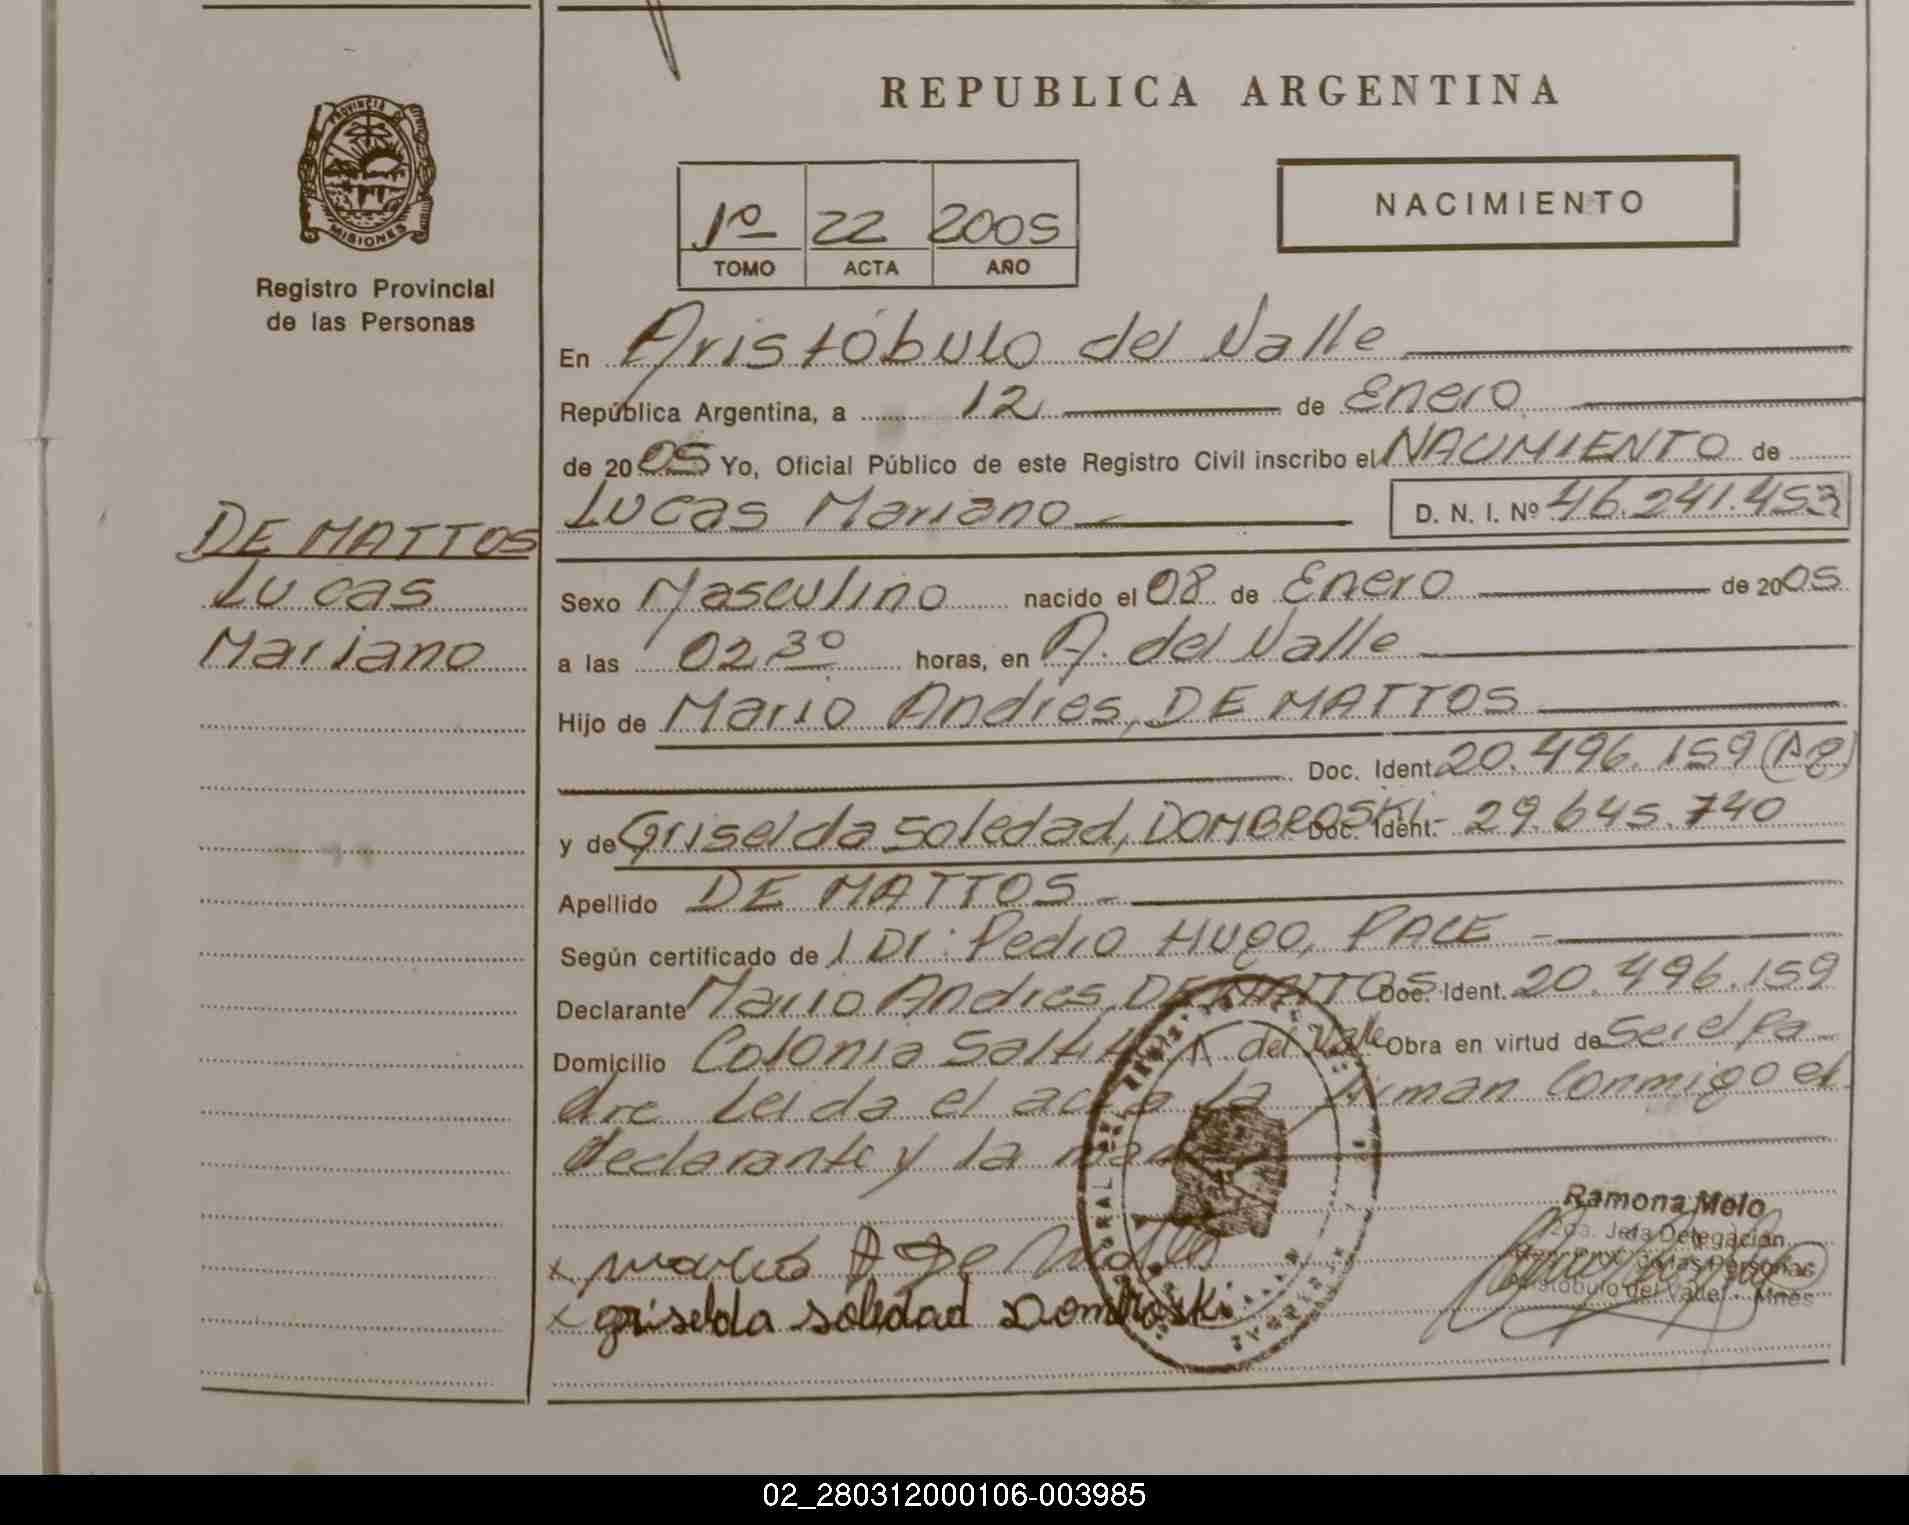 REPUBLICA ARGENTINA
PROVINCIA DE
MISIONES
Registro Provincial
de las Personas
1º 22 2005
TOMO ACTA AÑO
NACIMIENTO
En Aristóbulo del Valle
República Argentina, a 12 de Enero
de 2005 Yo, Oficial Público de este Registro Civil inscribo el NACIMIENTO de
Lucas Mariano D. N. I. Nº 46.241.453
DE MATTOS
Lucas
Mariano
Sexo Masculino nacido el 08 de Enero de 2005
a las 02,30 horas, en A. del Valle
Hijo de Mario Andres, DE MATTOS
Doc. Ident. 20.496.159 (Ag)
y de Griselda Soledad, DOMBROSKI- Doc. Ident. 29.645.740
Apellido DE MATTOS -
Según certificado de / Dr: Pedro Hugo, PACE -
Declarante Mario Andres, DE MATTOS Doc. Ident. 20.496.159
Domicilio Colonia Saltito A. del Valle Obra en virtud de Ser el Pa
dre Leida el acta la firman Conmigo el
declarante y la madre
Ramona Melo
2da. Jefa Delegación
de las Personas
Aristóbulo del Valle - Mnes
x Mario A De Mattos
x griselda soledad Dombroski
02_280312000106-003985